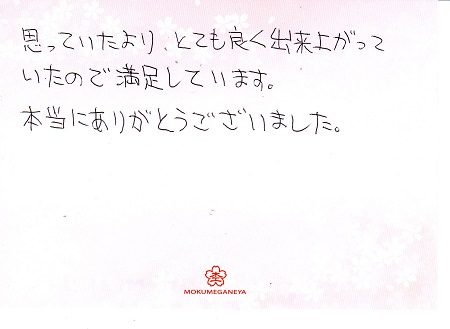 思っていたより、とても良く出来上がって
いたので満足しています。
本当にありがとうございました。
MOKUMEGANEYA